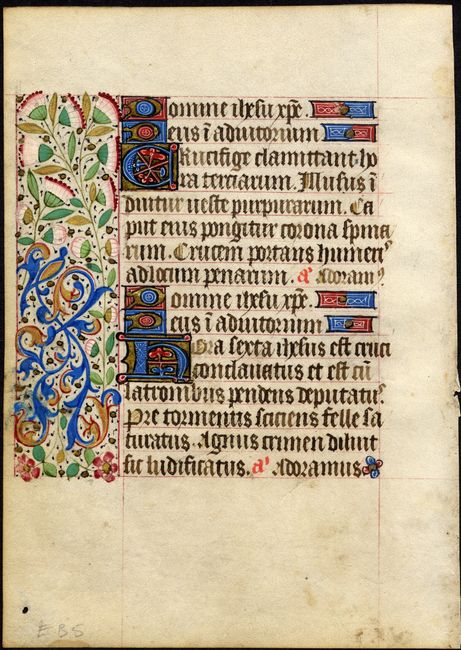 Domine ihesu xpe.
Deus i adiutorium
Crucifige clamittant ho
ra terciarum. Illusus i
duitur ueste purpurarum. Ca
put eius pongitur corona spina
rum. Crucem portans humeris
ad locum penarum. a' Adoramus
Domine ihesu xpe.
Deus i adiutorium
Hora sexta ihesus est cruci
conclauatus et est cu
latronibus pendens deputatus
Pre tormentis sciciens felle sa
turatus. Agnus crimen diluit
sic ludificatus. a' Adoramus
EB5